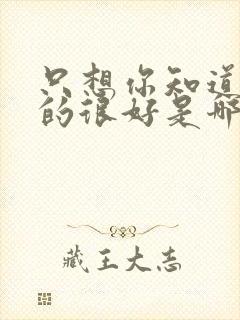 只想你知道
的很好是那
藏王大志